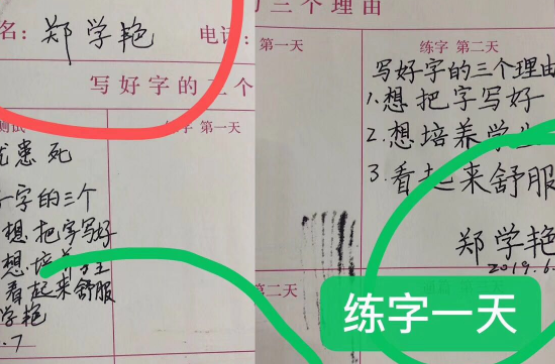 名: 郑学艳 电话:
写好字的三个
练字 第一天
忧患死
字的三个
想把字写好
想.培养学生
看起来舒服
学艳
.7
三个理由
第一天
练字 第二天
写好字的三个理由
1.想把字写好
2.想培养学生
3.看起来舒服
郑学艳
2019.6.
第二天
练字一天